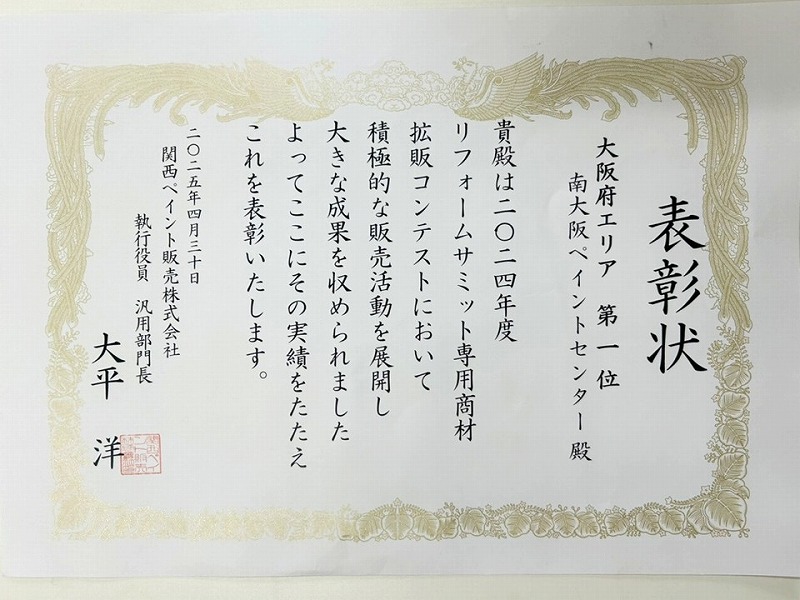 表彰状
大阪府エリア 第一位
南大阪ペイントセンター 殿
貴殿は二〇二四年度
リフォームサミット専用商材
拡販コンテストにおいて
積極的な販売活動を展開し
大きな成果を収められました
よってここにその実績をたたえ
これを表彰いたします。
二〇二五年四月三十日
関西ペイント販売株式会社
執行役員 汎用部門長
大平 洋